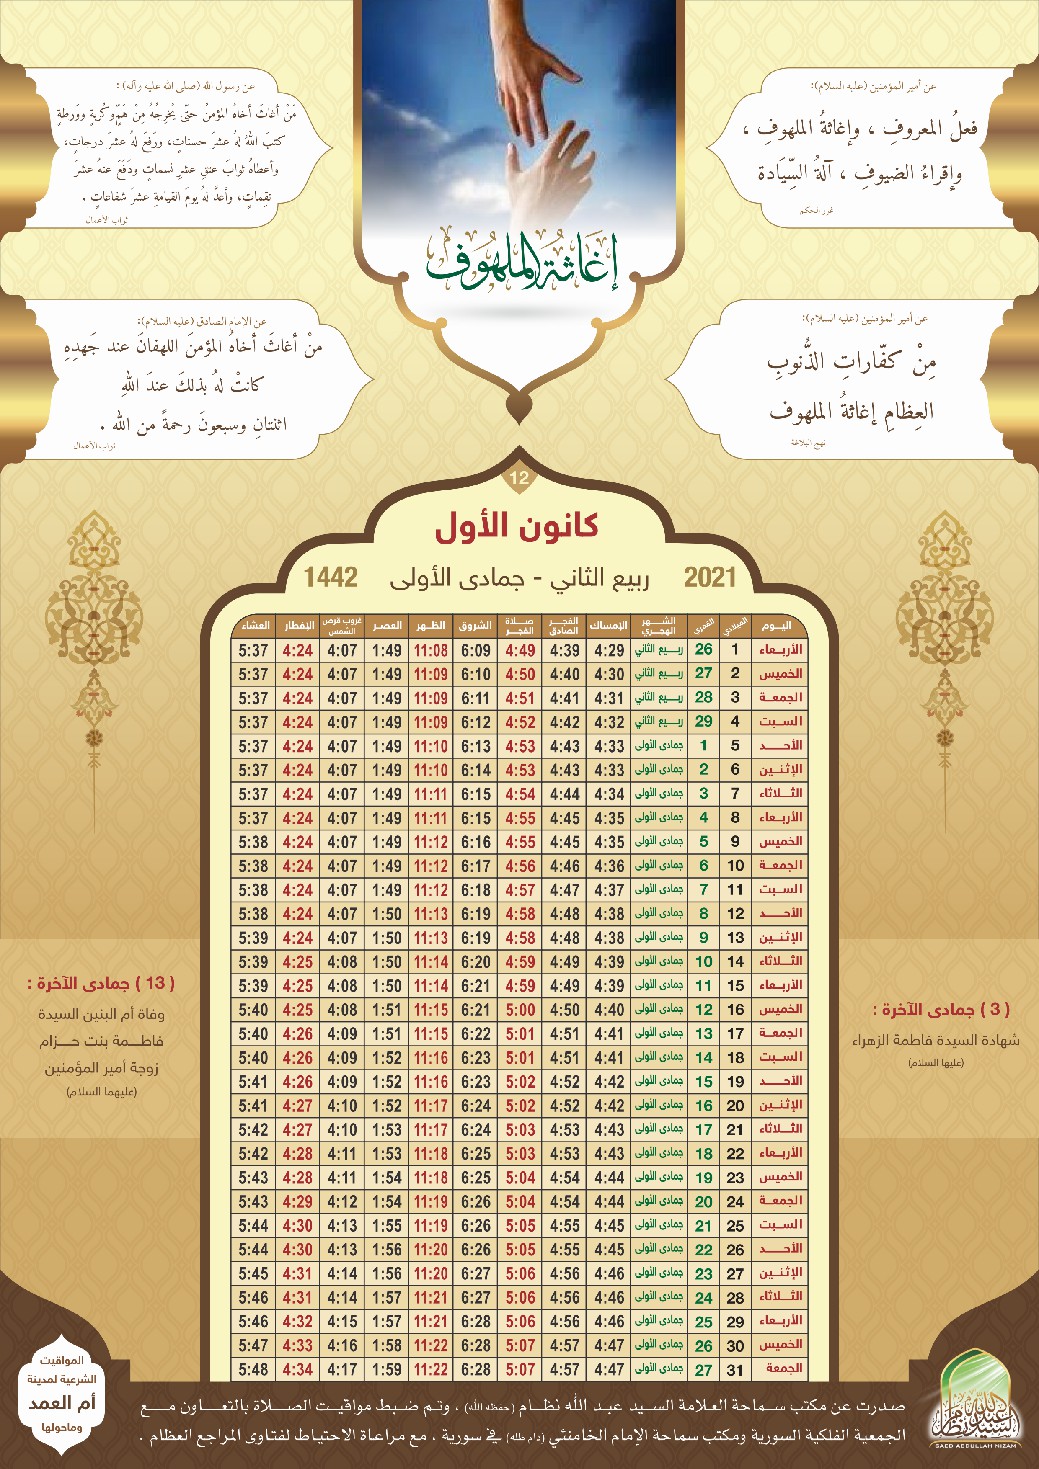 عن أمير المؤمنين (عليه السلام):
فعلُ المعروفِ ، وإغاثةُ الملهوفِ ،
وإقراءُ الضيوفِ ، آلةُ السِّيَادة
غرر الحكم
عن رسول الله (صلى الله عليه وآله) :
مَنْ أغاثَ أخاهُ المؤمنُ حتّى يُخرجُهُ مِنَ هَمٍّ وكُربةٍ وورطةٍ
كتبَ اللهُ لهُ عشرَ حسناتٍ، ورفعَ لهُ عشرَ درجاتٍ،
وأعطاهُ ثوابَ عتقِ عشرِ نسماتٍ ودَفَعَ عنهُ عشرَ
نِقِماتٍ، وأعدَّ لهُ يومَ القيامةِ عشرَ شفاعاتٍ .
ثواب الأعمال
إغاثة الملهوف
عن أمير المؤمنين (عليه السلام):
مِنْ كفّاراتِ الذُّنوبِ
العِظامِ إغاثةُ الملهوف
نهج البلاغة
عن الامام الصادق (عليه السلام):
منْ أغاثَ أخاهُ المؤمنَ اللهفانَ عند جَهدِهِ
كانتْ لهُ بذلكَ عندَ اللهِ
اثنتانِ وسبعونَ رحمةً من الله .
ثواب الأعمال
12
كانون الأول
2021 ربيع الثاني - جمادى الأولى 1442
اليوم الميلادي القمري الشهر الهجري الإمساك الفجر الصادق صلاة الفجر الشروق الظهر العصر غروب قرص الشمس الإفطار العشاء
الأربعاء 1 26 ربيع الثاني 4:29 4:39 4:49 6:09 11:08 1:49 4:07 4:24 5:37
الخميس 2 27 ربيع الثاني 4:30 4:40 4:50 6:10 11:09 1:49 4:07 4:24 5:37
الجمعة 3 28 ربيع الثاني 4:31 4:41 4:51 6:11 11:09 1:49 4:07 4:24 5:37
السبت 4 29 ربيع الثاني 4:32 4:42 4:52 6:12 11:09 1:49 4:07 4:24 5:37
الأحد 5 1 جمادى الأولى 4:33 4:43 4:53 6:13 11:10 1:49 4:07 4:24 5:37
الإثنين 6 2 جمادى الأولى 4:33 4:43 4:53 6:14 11:10 1:49 4:07 4:24 5:37
الثلاثاء 7 3 جمادى الأولى 4:34 4:44 4:54 6:15 11:11 1:49 4:07 4:24 5:37
الأربعاء 8 4 جمادى الأولى 4:35 4:45 4:55 6:15 11:11 1:49 4:07 4:24 5:37
الخميس 9 5 جمادى الأولى 4:35 4:45 4:55 6:16 11:12 1:49 4:07 4:24 5:38
الجمعة 10 6 جمادى الأولى 4:36 4:46 4:56 6:17 11:12 1:49 4:07 4:24 5:38
السبت 11 7 جمادى الأولى 4:37 4:47 4:57 6:18 11:12 1:49 4:07 4:24 5:38
الأحد 12 8 جمادى الأولى 4:38 4:48 4:58 6:19 11:13 1:50 4:07 4:24 5:38
الإثنين 13 9 جمادى الأولى 4:38 4:48 4:58 6:19 11:13 1:50 4:07 4:24 5:39
الثلاثاء 14 10 جمادى الأولى 4:39 4:49 4:59 6:20 11:14 1:50 4:08 4:25 5:39
الأربعاء 15 11 جمادى الأولى 4:39 4:49 4:59 6:21 11:14 1:50 4:08 4:25 5:39
الخميس 16 12 جمادى الأولى 4:40 4:50 5:00 6:21 11:15 1:51 4:08 4:25 5:40
الجمعة 17 13 جمادى الأولى 4:41 4:51 5:01 6:22 11:15 1:51 4:09 4:26 5:40
السبت 18 14 جمادى الأولى 4:41 4:51 5:01 6:23 11:16 1:52 4:09 4:26 5:40
الأحد 19 15 جمادى الأولى 4:42 4:52 5:02 6:23 11:16 1:52 4:09 4:26 5:41
الإثنين 20 16 جمادى الأولى 4:42 4:52 5:02 6:24 11:17 1:52 4:10 4:27 5:41
الثلاثاء 21 17 جمادى الأولى 4:43 4:53 5:03 6:24 11:17 1:53 4:10 4:27 5:42
الأربعاء 22 18 جمادى الأولى 4:43 4:53 5:03 6:25 11:18 1:53 4:11 4:28 5:42
الخميس 23 19 جمادى الأولى 4:44 4:54 5:04 6:25 11:18 1:54 4:11 4:28 5:43
الجمعة 24 20 جمادى الأولى 4:44 4:54 5:04 6:26 11:19 1:54 4:12 4:29 5:43
السبت 25 21 جمادى الأولى 4:45 4:55 5:05 6:26 11:19 1:55 4:13 4:30 5:44
الأحد 26 22 جمادى الأولى 4:45 4:55 5:05 6:26 11:20 1:56 4:13 4:30 5:44
الإثنين 27 23 جمادى الأولى 4:46 4:56 5:06 6:27 11:20 1:56 4:14 4:31 5:45
الثلاثاء 28 24 جمادى الأولى 4:46 4:56 5:06 6:27 11:21 1:57 4:14 4:31 5:46
الأربعاء 29 25 جمادى الأولى 4:46 4:56 5:06 6:28 11:21 1:57 4:15 4:32 5:46
الخميس 30 26 جمادى الأولى 4:47 4:57 5:07 6:28 11:22 1:58 4:16 4:33 5:47
الجمعة 31 27 جمادى الأولى 4:47 4:57 5:07 6:28 11:22 1:59 4:17 4:34 5:48
( 3 ) جمادى الآخرة :
شهادة السيدة فاطمة الزهراء
(عليها السلام)
( 13 ) جمادى الآخرة :
وفاة أم البنين السيدة
فاطمة بنت حزام
زوجة أمير المؤمنين
(عليهما السلام)
صدرت عن مكتب سماحة العلامة السيد عبد الله نظام (حفظه الله) ، وتم ضبط مواقيت الصلاة بالتعاون مع
الجمعية الفلكية السورية ومكتب سماحة الإمام الخامنئي (دام ظله) في سورية ، مع مراعاة الاحتياط لفتاوى المراجع العظام .
المواقيت
الشرعية لمدينة
أم العمد
وماحولها
السيد عبد الله نظام
SAED ABDULLAH NIZAM